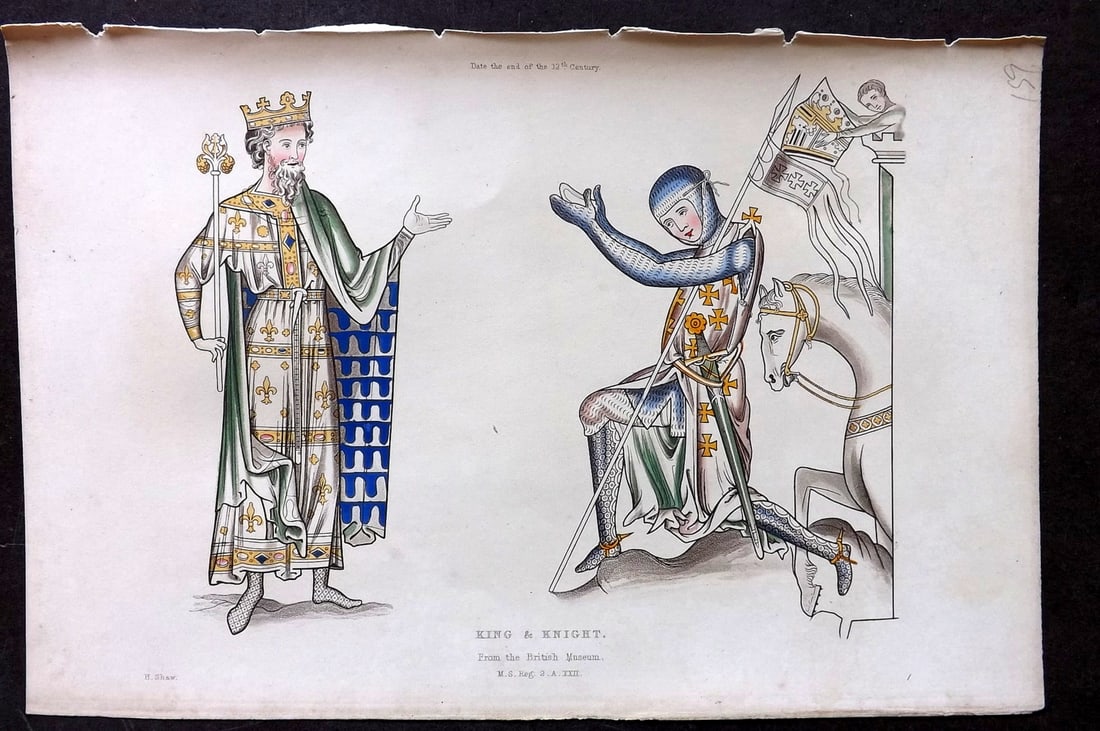 Date the end of the 12th Century.
151
KING & KNIGHT.
From the British Museum.
H. Shaw.
M.S. Reg. 2. A. XXII.